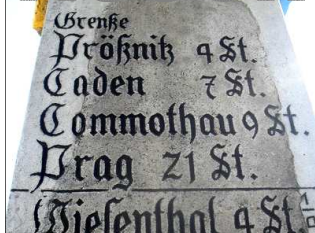 Grentze
Prößnitz 4 St.
Caden 7 St.
Commothau 9 St.
Prag 21 St.
Wiesenthal 4 St.